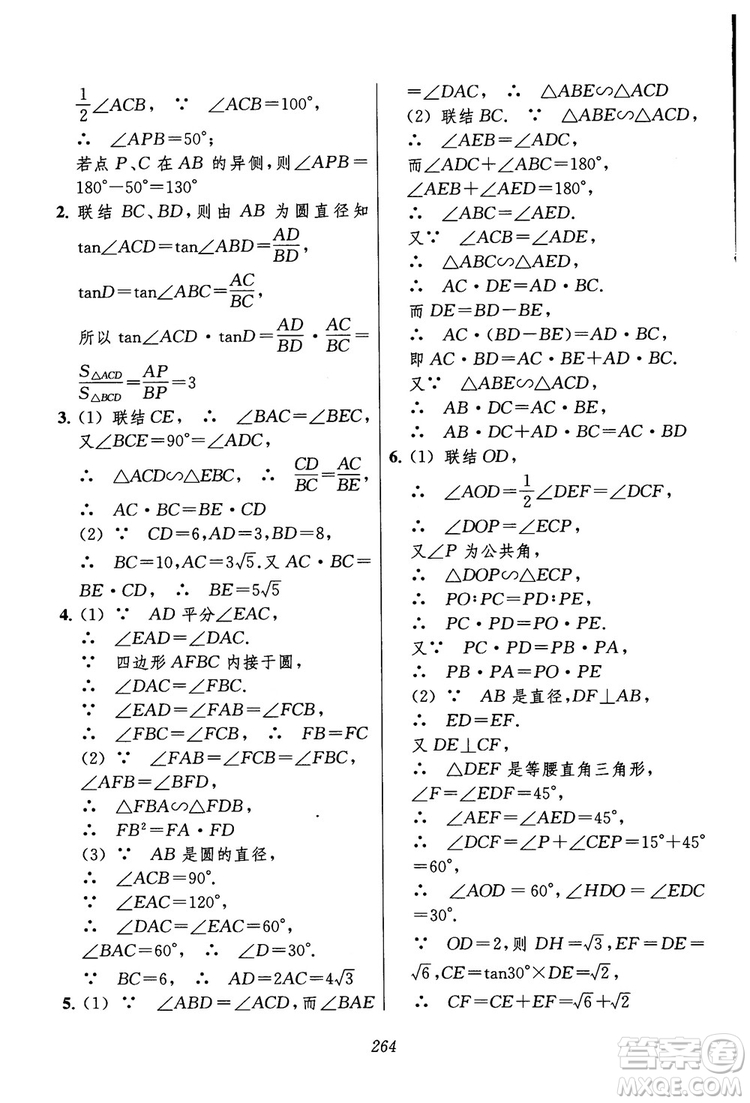 1/2∠ACB, ∵ ∠ACB=100°,
∴ ∠APB=50°;
若点 P、C 在 AB 的异侧,则∠APB=
180°-50°=130°
2. 联结 BC、BD,则由 AB 为圆直径知
tan∠ACD=tan∠ABD=AD/BD,
tanD=tan∠ABC=AC/BC,
所以 tan∠ACD·tanD=AD/BD·AC/BC=
S△ACD/S△BCD=AP/BP=3
3. (1) 联结CE, ∴ ∠BAC=∠BEC,
又∠BCE=90°=∠ADC,
∴ △ACD∽△EBC, ∴ CD/BC=AC/BE,
∴ AC·BC=BE·CD
(2) ∵ CD=6,AD=3,BD=8,
∴ BC=10,AC=3√5.又 AC·BC=
BE·CD, ∴ BE=5√5
4. (1) ∵ AD 平分∠EAC,
∴ ∠EAD=∠DAC.
∵ 四边形 AFBC 内接于圆,
∴ ∠DAC=∠FBC.
∵ ∠EAD=∠FAB=∠FCB,
∴ ∠FBC=∠FCB, ∴ FB=FC
(2) ∵ ∠FAB=∠FCB=∠FBC,
∠AFB=∠BFD,
∴ △FBA∽△FDB,
∴ FB²=FA·FD
(3) ∵ AB 是圆的直径,
∴ ∠ACB=90°.
∵ ∠EAC=120°,
∴ ∠DAC=∠EAC=60°,
∠BAC=60°, ∴ ∠D=30°.
∵ BC=6, ∴ AD=2AC=4√3
5. (1) ∵ ∠ABD=∠ACD,而∠BAE
=∠DAC, ∴ △ABE∽△ACD
(2) 联结 BC. ∵ △ABE∽△ACD,
∴ ∠AEB=∠ADC,
而∠ADC+∠ABC=180°,
∠AEB+∠AED=180°,
∴ ∠ABC=∠AED.
又∵ ∠ACB=∠ADE,
∴ △ABC∽△AED,
∴ AC·DE=AD·BC.
而 DE=BD-BE,
∴ AC·(BD-BE)=AD·BC,
即 AC·BD=AC·BE+AD·BC.
又∵ △ABE∽△ACD,
∴ AB·DC=AC·BE,
∴ AC·BD=AB·DC+AD·BC
6. (1) 联结 OD,
∴ ∠AOD=1/2∠DEF=∠DCF,
∴ ∠DOP=∠ECP,
又∠P 为公共角,
∴ △DOP∽△ECP,
∴ PO:PC=PD:PE,
∴ PC·PD=PO·PE.
又∵ PC·PD=PB·PA,
∴ PB·PA=PO·PE
(2) ∵ AB 是直径,DF⊥AB,
∴ ED=EF.
又 DE⊥CF,
∴ △DEF 是等腰直角三角形,
∠F=∠EDF=45°,
∴ ∠AEF=∠AED=45°,
∴ ∠DCF=∠P+∠CEP=15°+45°
=60°,
∴ ∠AOD=60°,∠HDO=∠EDC
=30°.
∵ OD=2,则 DH=√3,EF=DE=
√6,CE=tan30°×DE=√2,
∴ CF=CE+EF=√6+√2
264
答案圈
MXQE.COM